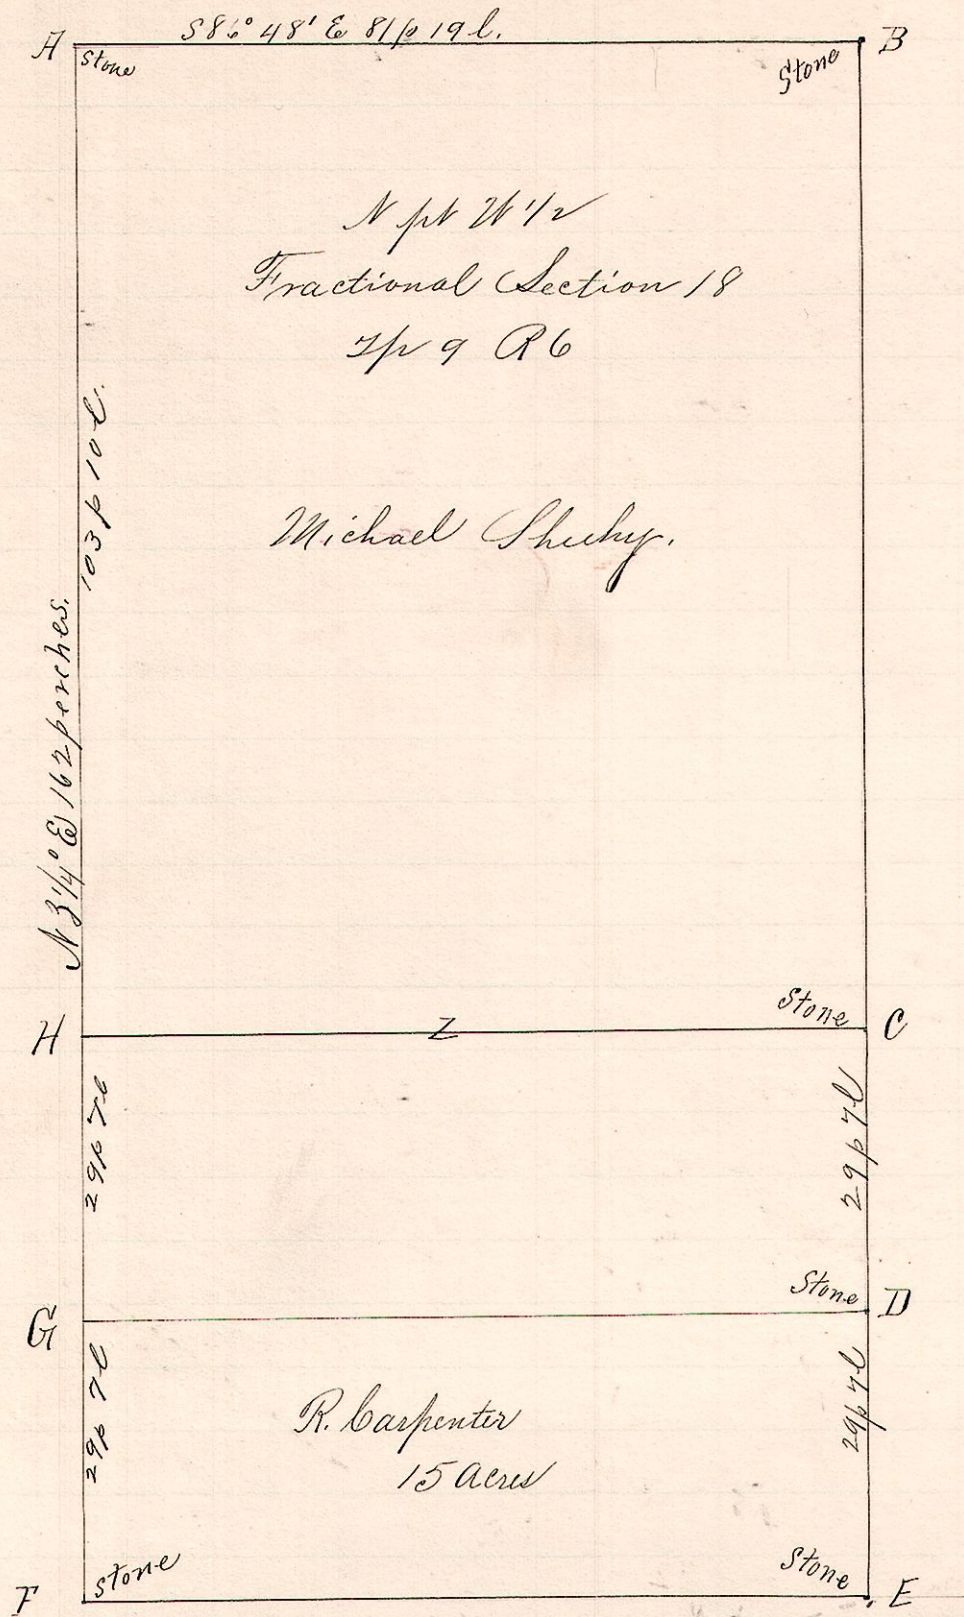 S 86° 48' E 81 p 19 l.
A
B
Stone
Stone
N pt W 1/2
Fractional Section 18
Tp 9 R 6
103 p 10 l.
Michael Sheehy.
N 3 1/4° E 162 perches.
Stone
H
Z
C
29 p 7 l
29 p 7 l
Stone
D
G
29 p 7 l
29 p 7 l
R. Carpenter
15 Acres
Stone
Stone
F
E